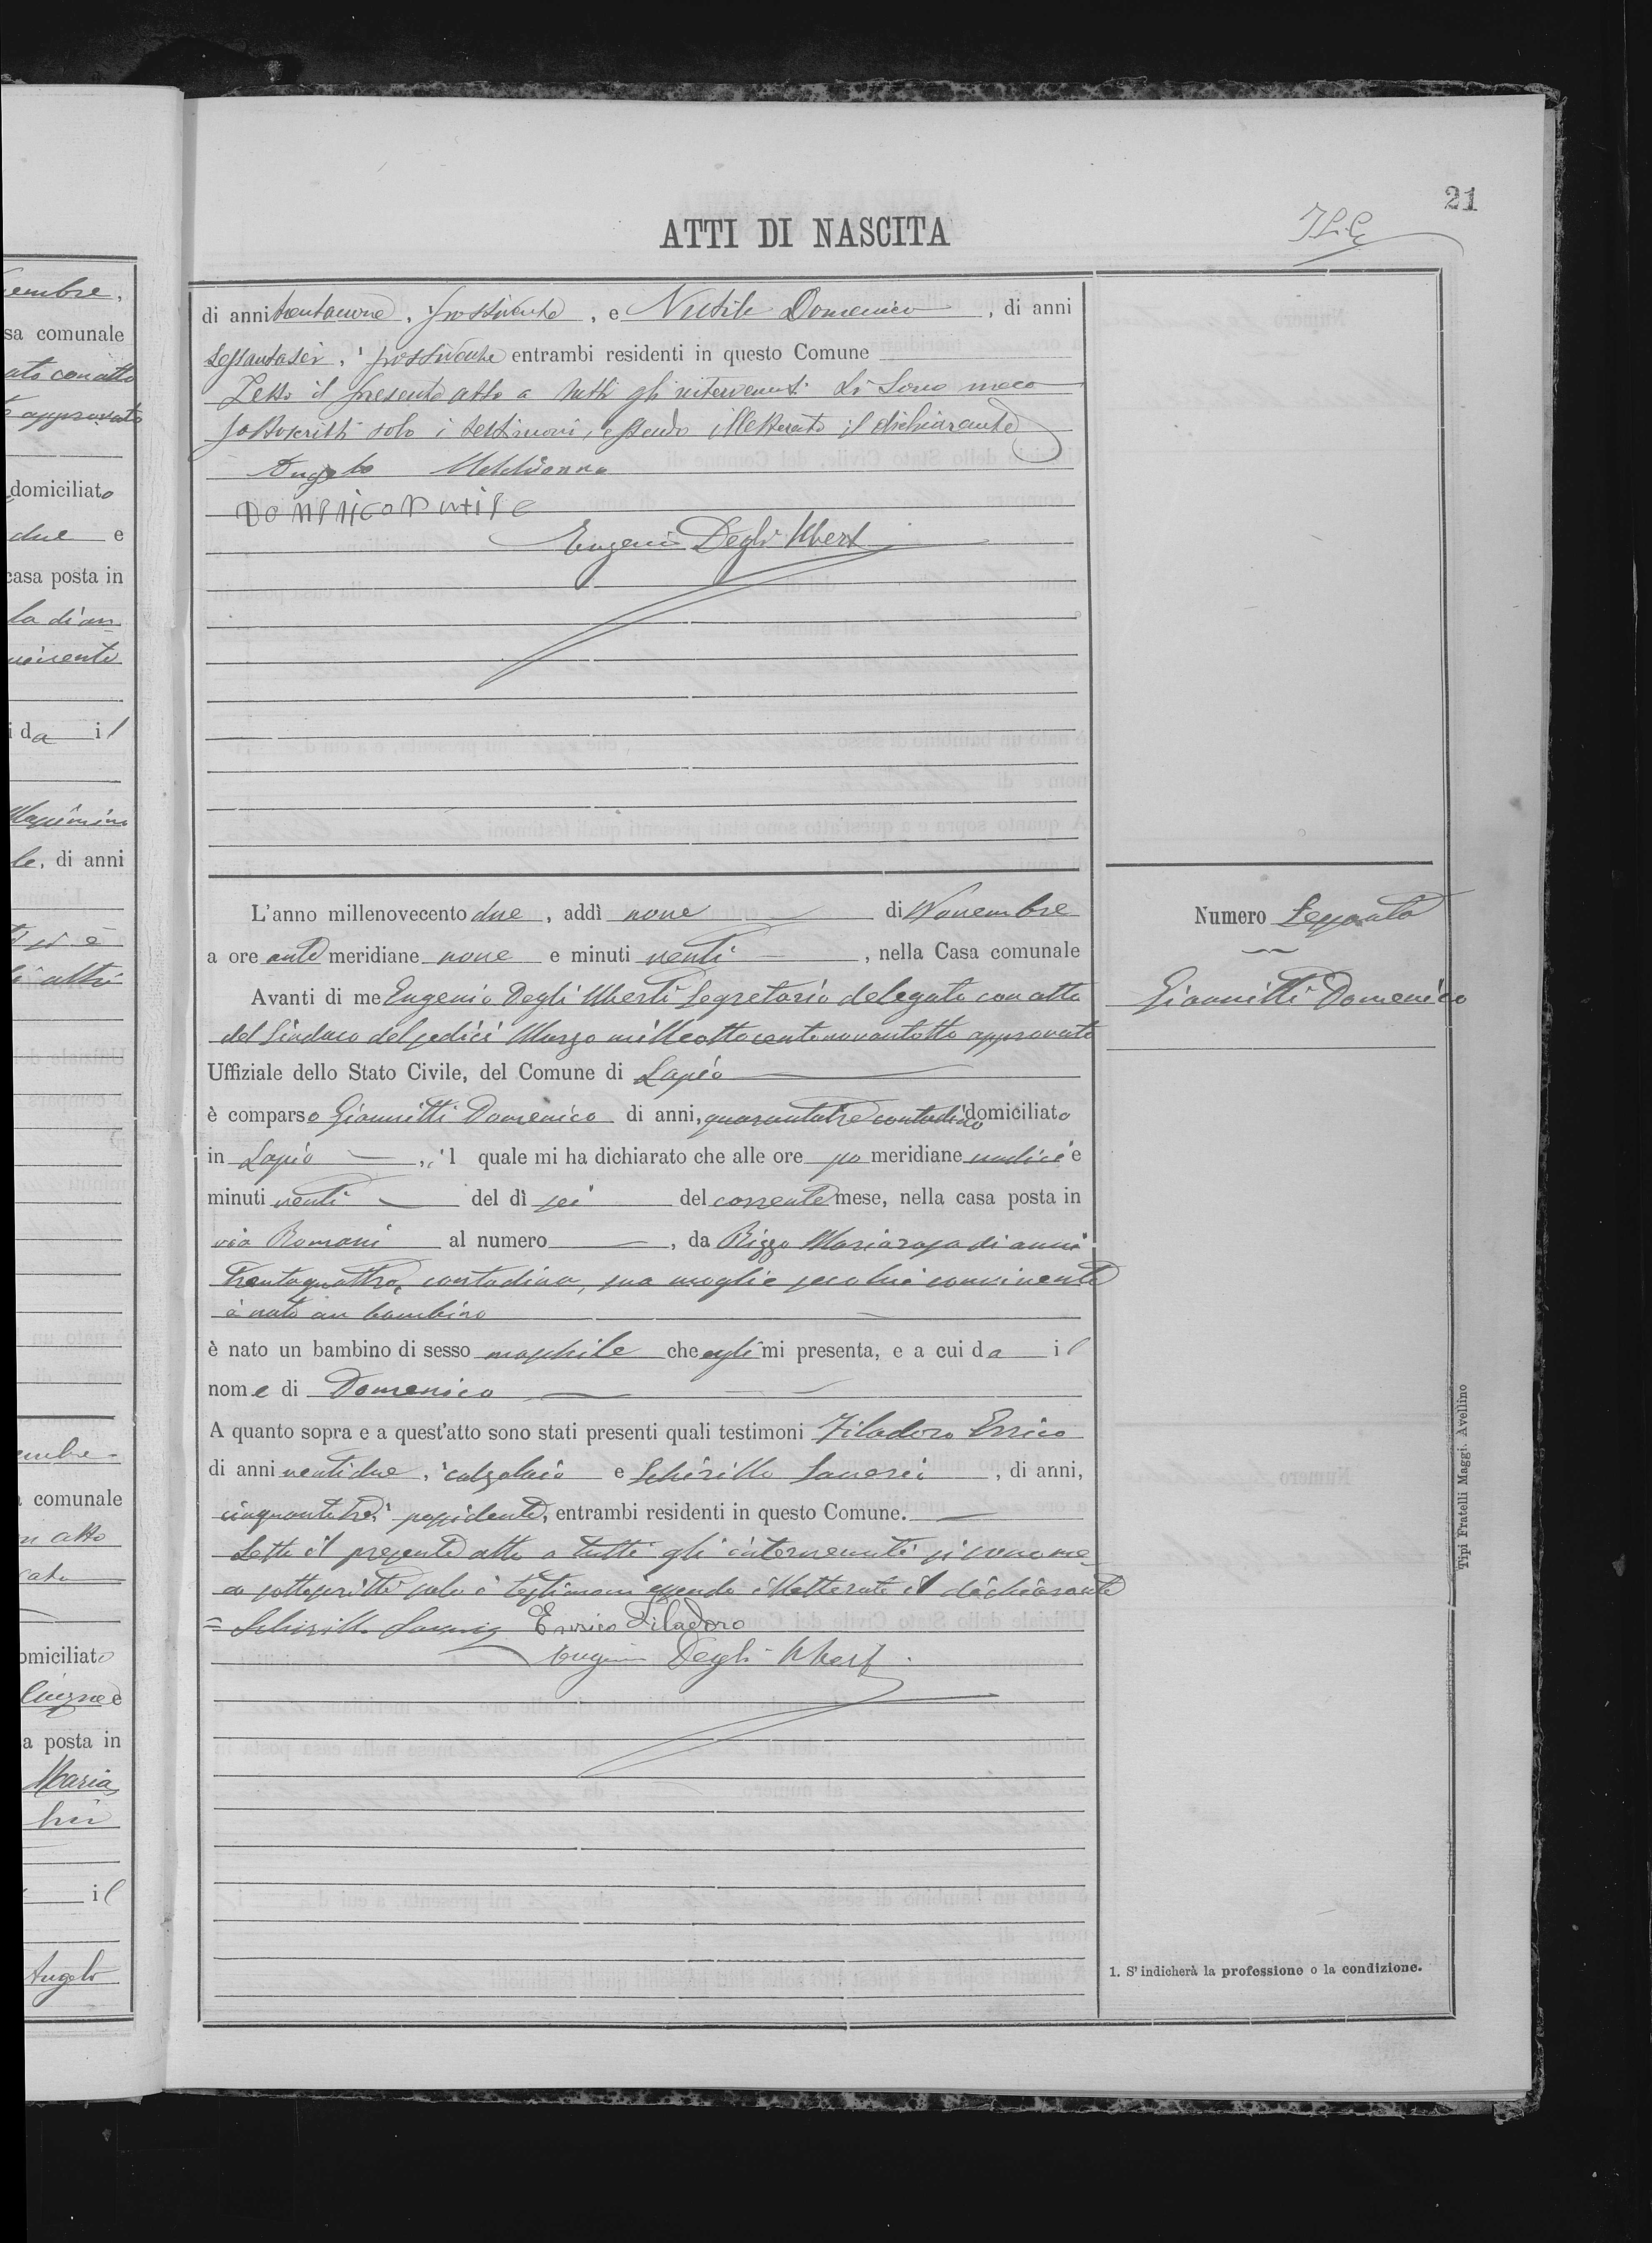 embre,
sa comunale
ato con atto
approvato
domiciliato
due e
casa posta in
la di an
vivente
i da il
le, di anni
altri
embre
comunale
n atto
cato
omiciliato
e
a posta in
Maria
lui
il
Angelo
21
ATTI DI NASCITA
di anni trentanove, possidente, e Nutile Domenico, di anni
sessantasei, possidente entrambi residenti in questo Comune
Letto il presente atto a tutti gli intervenuti si sono meco
sottoscritti solo i testimoni, essendo illetterato il dichiarante
Angelo
Domenico Nutile
Eugenio Degli Uberti
L'anno millenovecento due, addì nove di Novembre
a ore anti meridiane nove e minuti venti, nella Casa comunale
Avanti di me Eugenio Degli Uberti Segretario delegato con atto
del Sindaco del sedici Marzo milleottocentonovantotto approvato
Uffiziale dello Stato Civile, del Comune di Lapio
è comparso Giannitti Domenico di anni, quarantatre contadino domiciliato
in Lapio, il quale mi ha dichiarato che alle ore po meridiane undici e
minuti venti del dì sei del corrente mese, nella casa posta in
via Romani al numero, da Rizzo Mariarosa di anni
trentaquattro, contadina, sua moglie seco lui convivente
è nato un bambino
è nato un bambino di sesso maschile che egli mi presenta, e a cui da il
nome di Domenico
A quanto sopra e a quest'atto sono stati presenti quali testimoni Filadoro Errico
di anni ventidue, calzolaio e Schirillo Saverio, di anni,
cinquantatre, possidente, entrambi residenti in questo Comune.
Letto il presente atto a tutti gli intervenuti si sono me
co sottoscritti solo i testimoni essendo illetterato il dichiarante
= Schirillo Saverio Errico Filadoro
Eugenio Degli Uberti
Numero Sessanta
Giannitti Domenico
1. S'indicherà la professione o la condizione.
Tipi Fratelli Maggi. Avellino